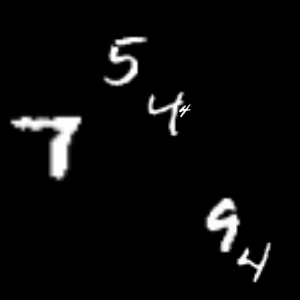 5
4 4
7
9
4